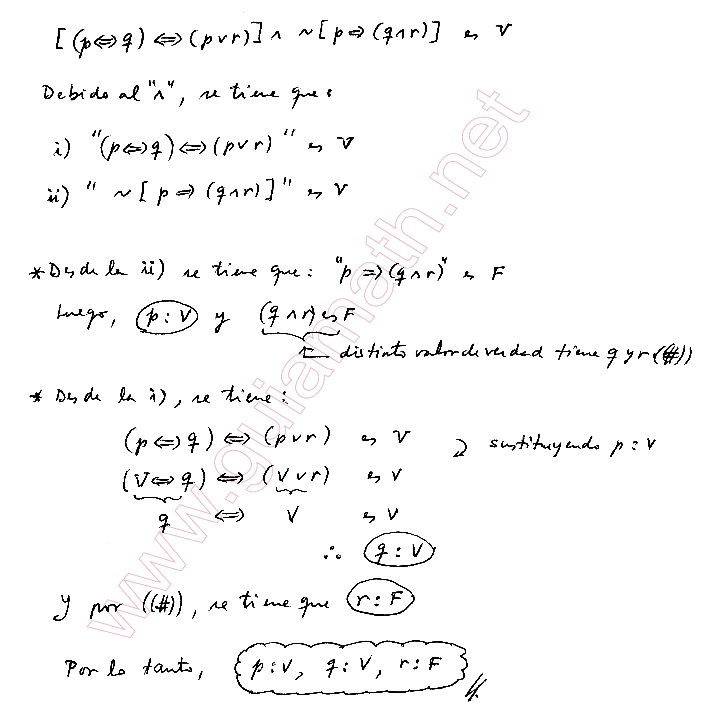 [(p⇔q) ⇔ (p∨r)] ∧ ~[p⇒(q∧r)] es V
Debido al "∧", se tiene que:
i) "(p⇔q) ⇔ (p∨r)" es V
ii) "~[p ⇒ (q∧r)]" es V
* Desde la ii) se tiene que: "p ⇒ (q∧r)" es F
Luego, p : V y (q∧r) es F
← distinto valor de verdad tiene q y r ((#))
* Desde la i), se tiene:
(p⇔q) ⇔ (p∨r) es V
sustituyendo p : V
(V⇔q) ⇔ (V∨r) es V
q ⇔ V es V
∴ q : V
y por ((#)), se tiene que r : F
Por lo tanto, p : V, q : V, r : F
www.guiamath.net